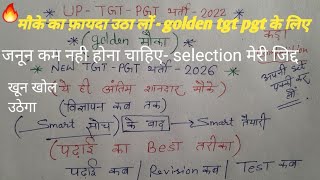 UP- TGT- PGT भर्ती - 2022
मौके का फ़ायदा उठा लों - golden tgt pgt के लिए
(golden मौका)
जनून कम नही होना चाहिए- selection मेरी जिद्द
NEW TGT- PGT भर्ती - 2026
खून खोल उठेगा
ये ही अंतिम शानदार मौके
(विज्ञापन कब तक)
अपनी
Smart सोच के बाद Smart तैयारी
(पढाई का Best तरीका)
पढाई कब / Revision कब / Test कब